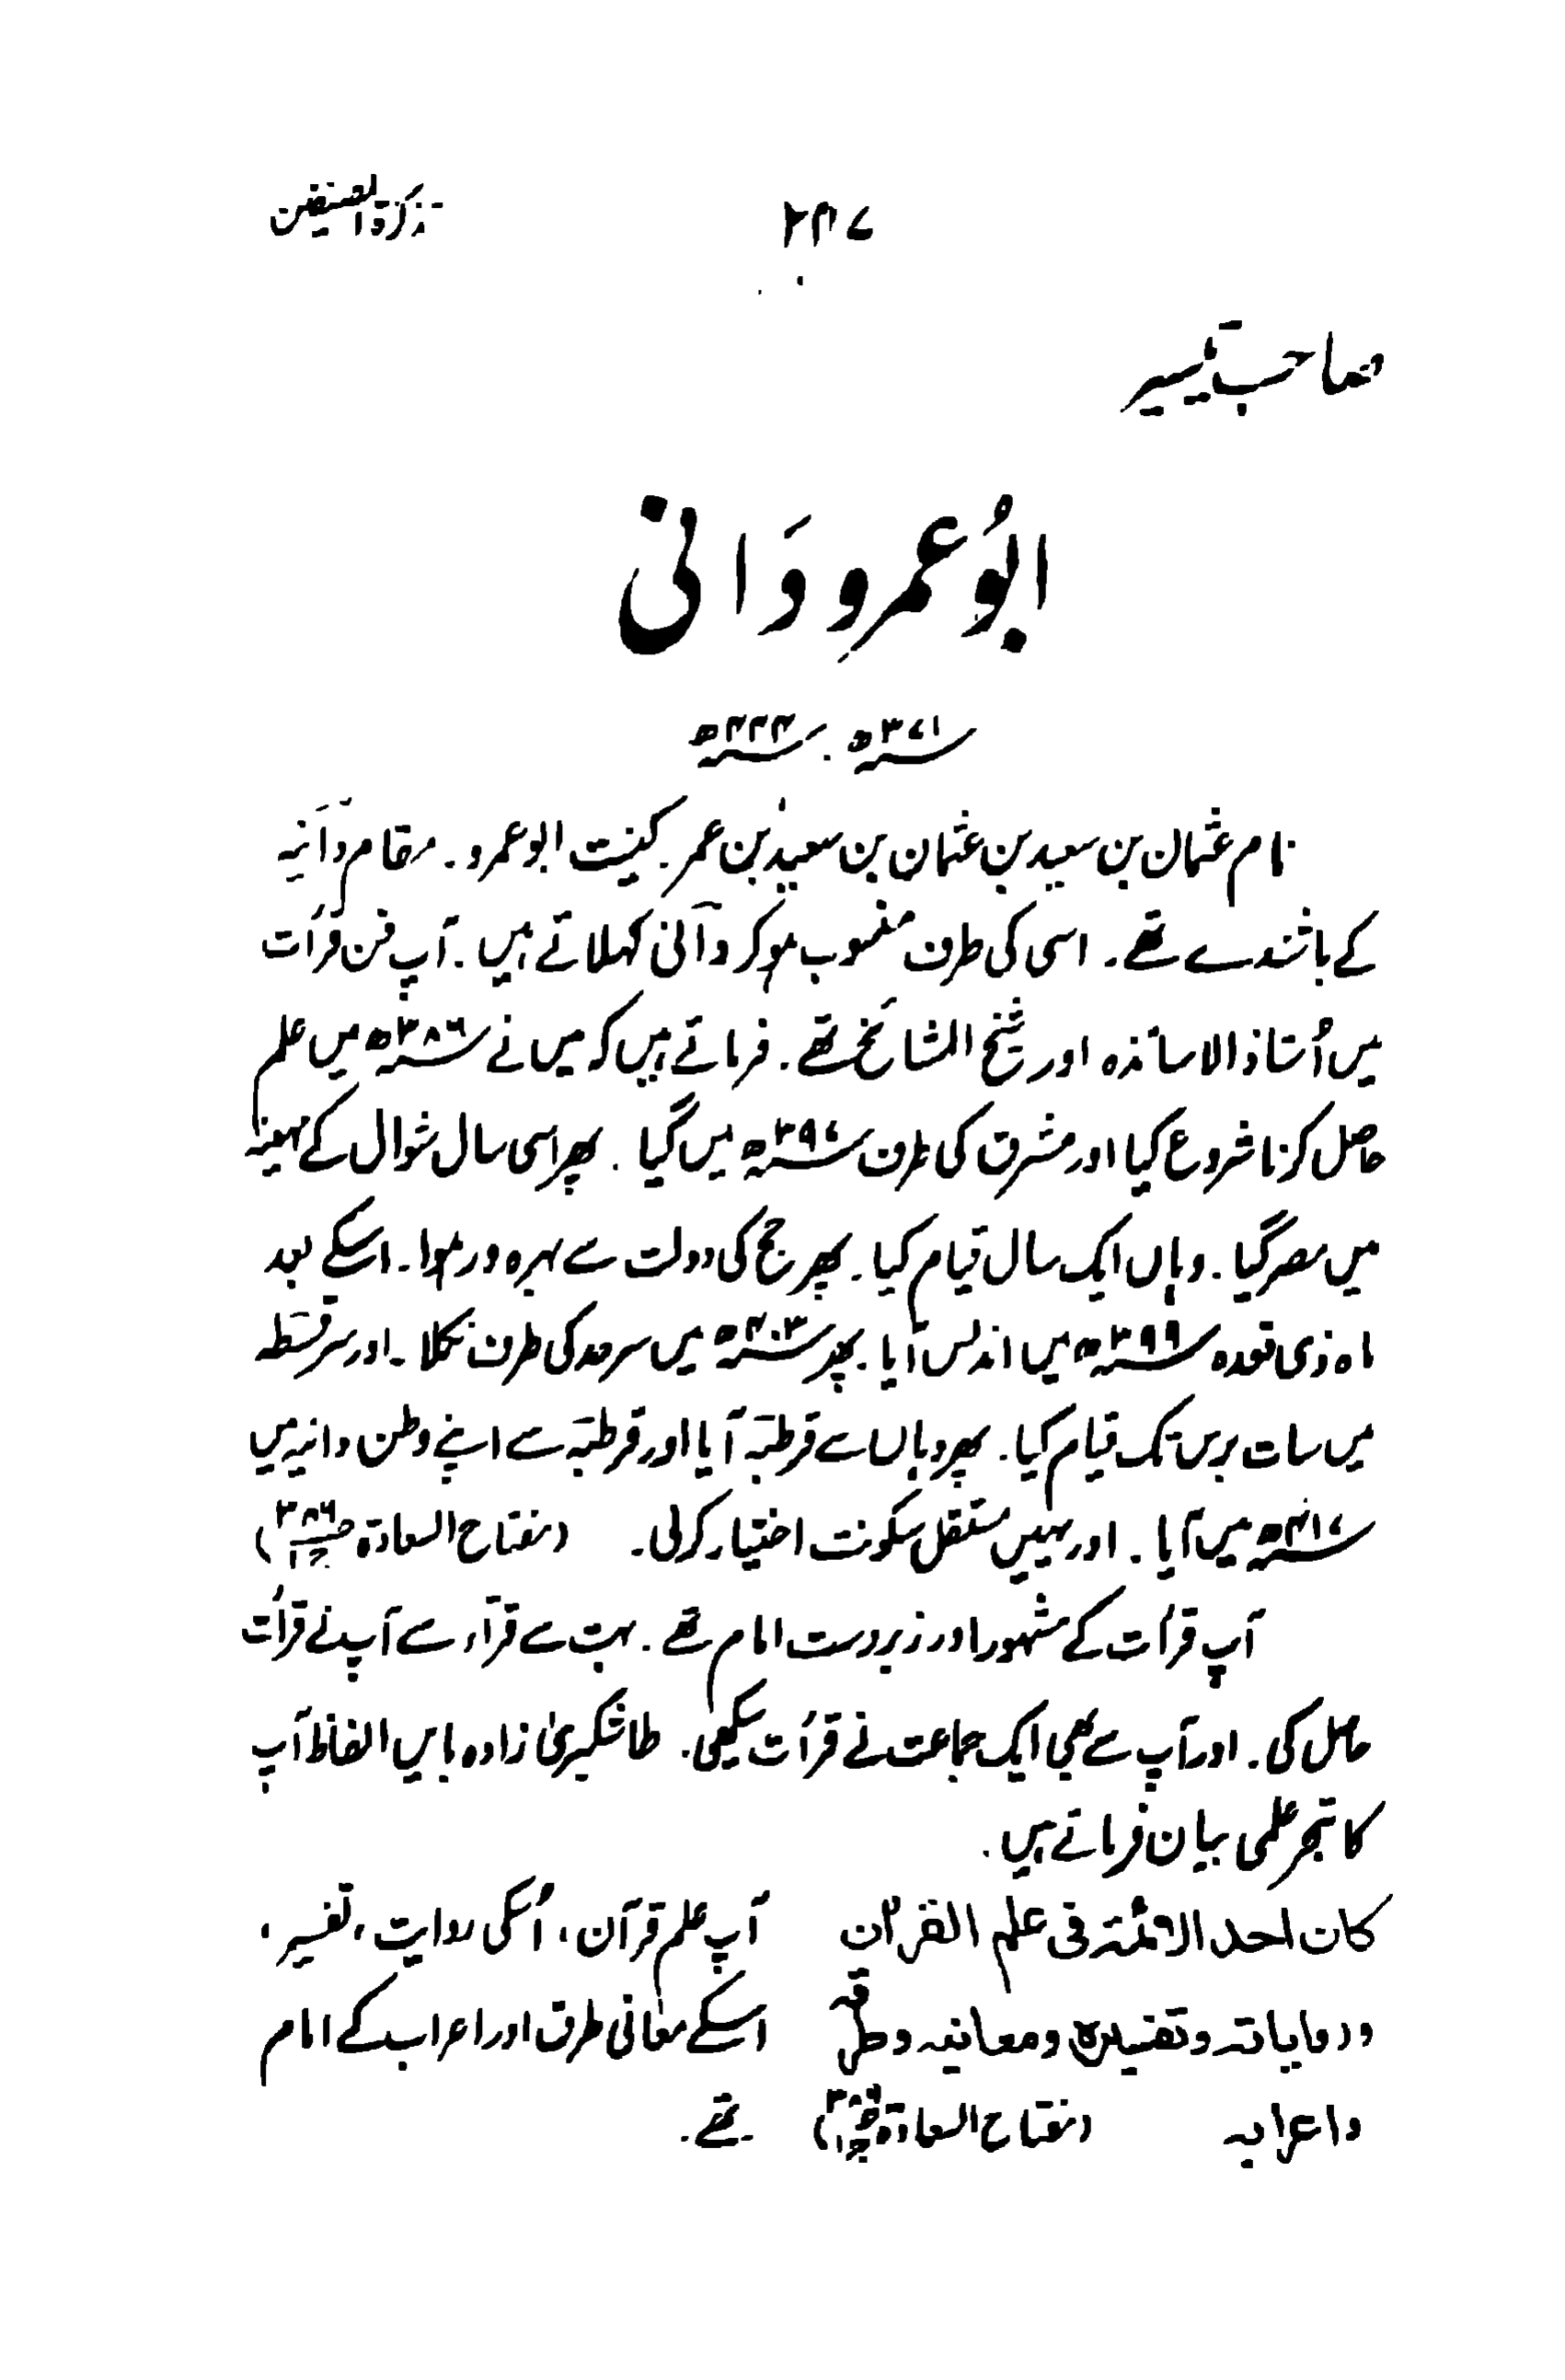 تذکرۃ المصنفین
۲۴۷
صاحب تیسیر
ابُو عمرو دَانی
۳۷۱ھ ۔ ۴۴۴ھ
نام عثمان بن سعید بن عثمان بن سعید بن عمر. کنیت ابو عمرو۔ مقام دآنیَہ
کے باشندے تھے۔ اسی کی طرف منسوب ہو کر دآنی کہلاتے ہیں۔ آپ فن قرأت
میں اُستاذ الاساتذہ اور شیخ المشائخ تھے۔ فرماتے ہیں کہ میں نے ۳۸۶ھ میں علم
حاصل کرنا شروع کیا اور مشرق کی طرف ۳۹۷ھ میں گیا۔ پھر اسی سال شوال کے مہینہ
میں مصر گیا۔ وہاں ایک سال قیام کیا۔ پھر حج کی دولت سے بہرہ ور ہوا۔ اسکے بعد
ماہ ذی قعدہ ۳۹۹ھ میں اندلس آیا۔ پھر ۴۰۳ھ میں سرحد کی طرف نکلا۔ اور سرقسَطہ
میں سات برس تک قیام کیا۔ پھر وہاں سے قرطبَہ آیا اور قرطبَہ سے اپنے وطن دانیہ میں
۴۱۷ھ میں آیا۔ اور یہیں مستقل سکونت اختیار کرلی۔ (مفتاح السعادۃ ص۳۸۶ ج۱)
آپ قرأت کے مشہور اور زبردست امام تھے۔ بہت سے قرآء سے آپ نے قرأت
حاصل کی۔ اور آپ سے بھی ایک جماعت نے قرأت سیکھی۔ طاشکبریٰ زادہ بایں الفاظ آپ
کا تبحر علمی بیان فرماتے ہیں۔
کان احد الائمۃ فی علم القرآن آپ علم قرآن، اُسکی روایت، تفسیر،
وروایاتہ وتفسیرہ ومعانیہ وطرقہ اسکے معانی طرق اور اعراب کے امام
واعرابہ (مفتاح السعادۃ تھے۔